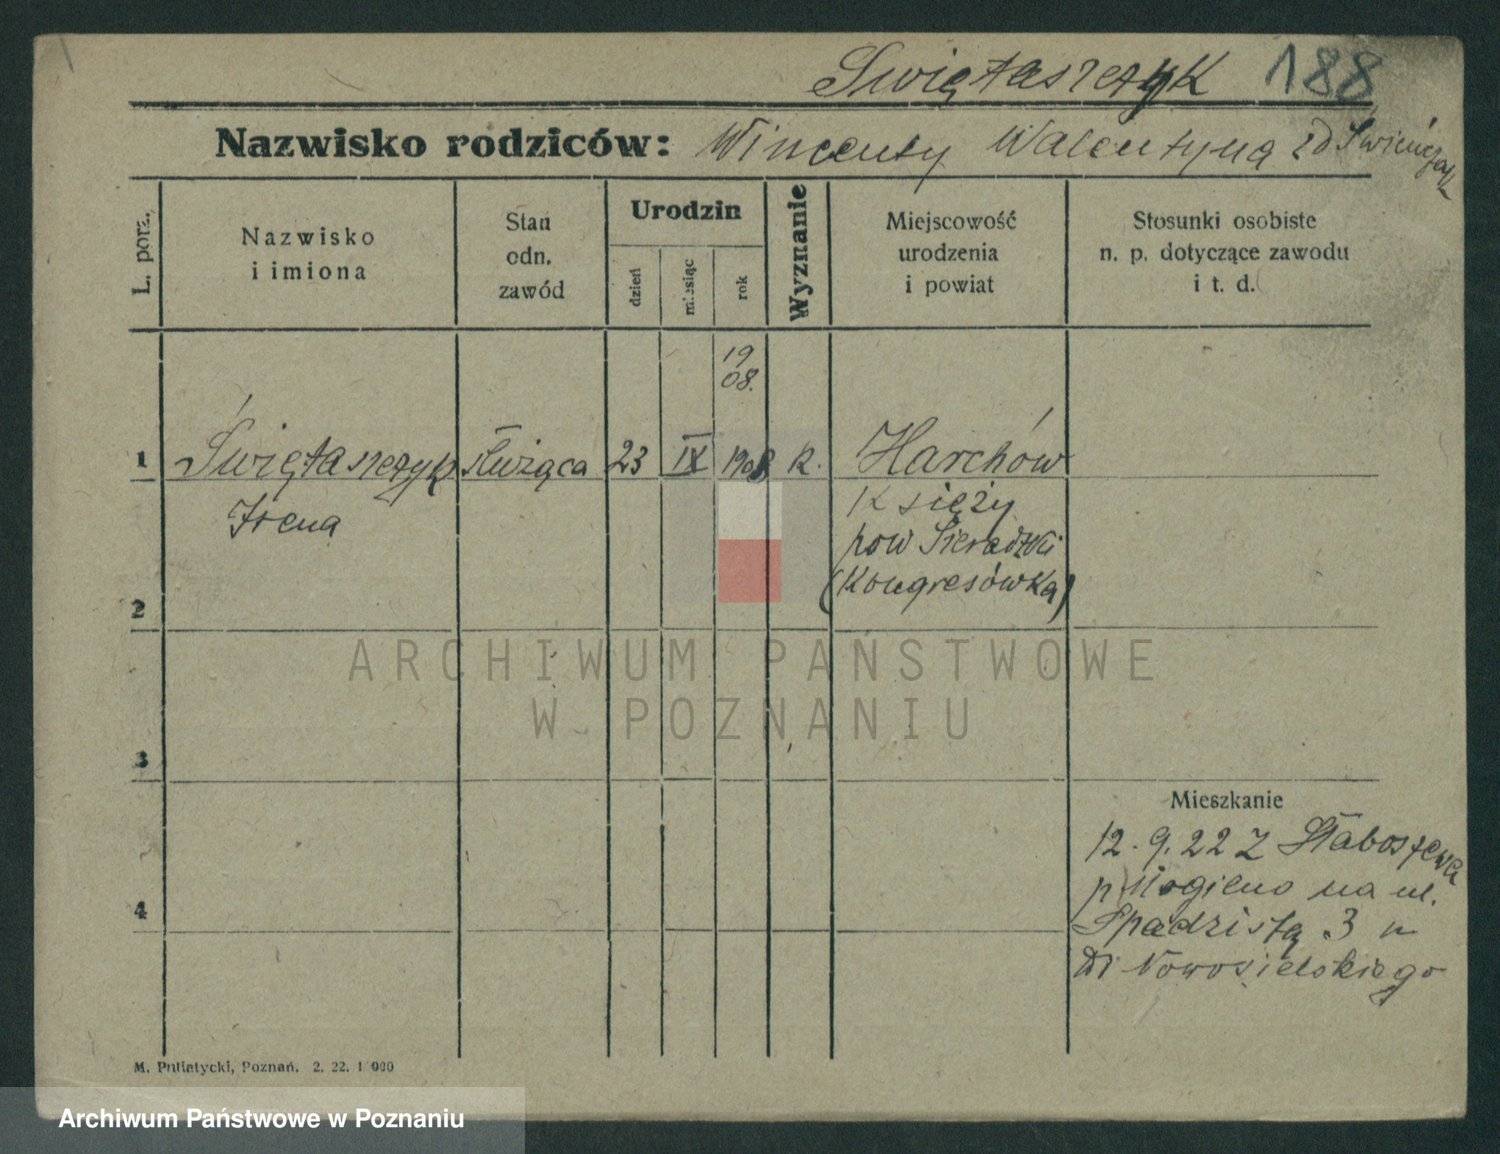 Swiętaszczyk 188
Nazwisko rodziców: Wincenty Walentyna zd Świeńczak
L. porz.
Nazwisko
i imiona
Stan
odn.
zawód
Urodzin
dzień
miesiąc
rok
Wyznanie
Miejscowość
urodzenia
i powiat
Stosunki osobiste
n. p. dotyczące zawodu
i t. d.
19
08.
1 Świętaszczyk służąca 23 IX 1908 R. Harchów
Irena
Księży
pow Sieradzki
(Kongresówka)
2
ARCHIWUM PAŃSTWOWE
W POZNANIU
3
Mieszkanie
12. 9. 22 z Słaboszewa
p Mogilno na ul.
4
Spadzistą 3 n
Di Nowosielskiego
M. Putiatycki, Poznań. 2. 22. 1 000
Archiwum Państwowe w Poznaniu